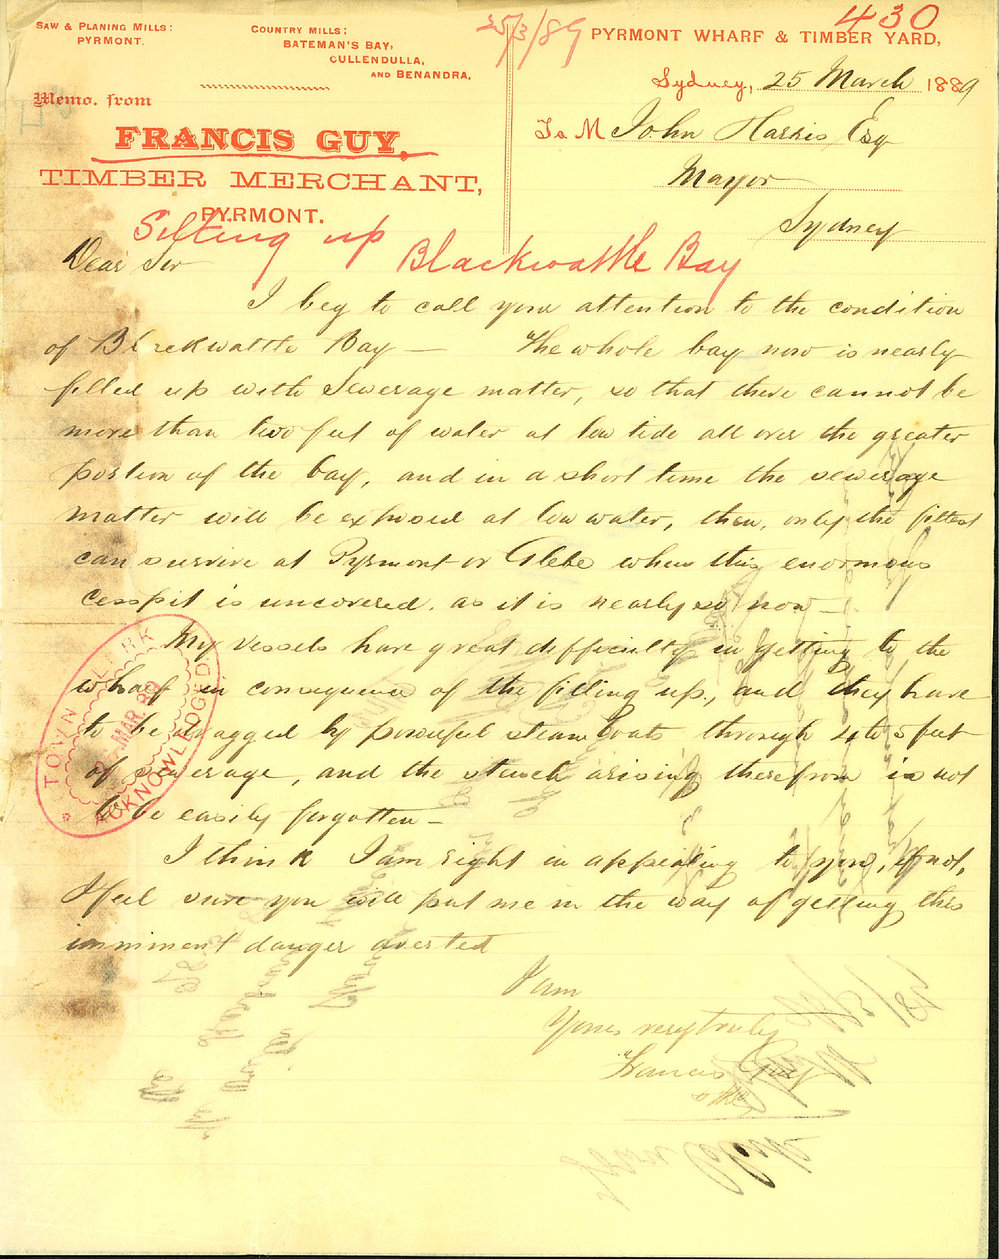 430
25/3/89
SAW & PLANING MILLS:
PYRMONT.
COUNTRY MILLS:
BATEMAN'S BAY,
CULLENDULLA,
AND BENANDRA.
PYRMONT WHARF & TIMBER YARD,
Sydney, 25 March 1889
Memo. from
FRANCIS GUY,
TIMBER MERCHANT,
PYRMONT.
To M John Harris, Esq
Mayor
Sydney
Silting up Blackwattle Bay
Dear Sir
I beg to call your attention to the condition
of Blackwattle Bay — The whole bay now is nearly
filled up with Sewerage matter, so that there cannot be
more than two feet of water at low tide all over the greater
portion of the bay, and in a short time the sewerage
matter will be exposed at low water, then, only the fittest
can survive at Pyrmont or Glebe when this enormous
cesspit is uncovered. as it is nearly so now —
My vessels have great difficulty in getting to the
wharf in consequence of the filling up., and they have
to be dragged by powerful steam boats through 4 to 5 feet
of sewerage, and the stench arising therefrom is not
to be easily forgotten —
I think I am right in appealing to you, if not,
I feel sure you will put me in the way of getting this
imminent danger averted
I am
Yours very truly
Francis Guy
TOWN CLERK
MAR 89
ACKNOWLEDGED